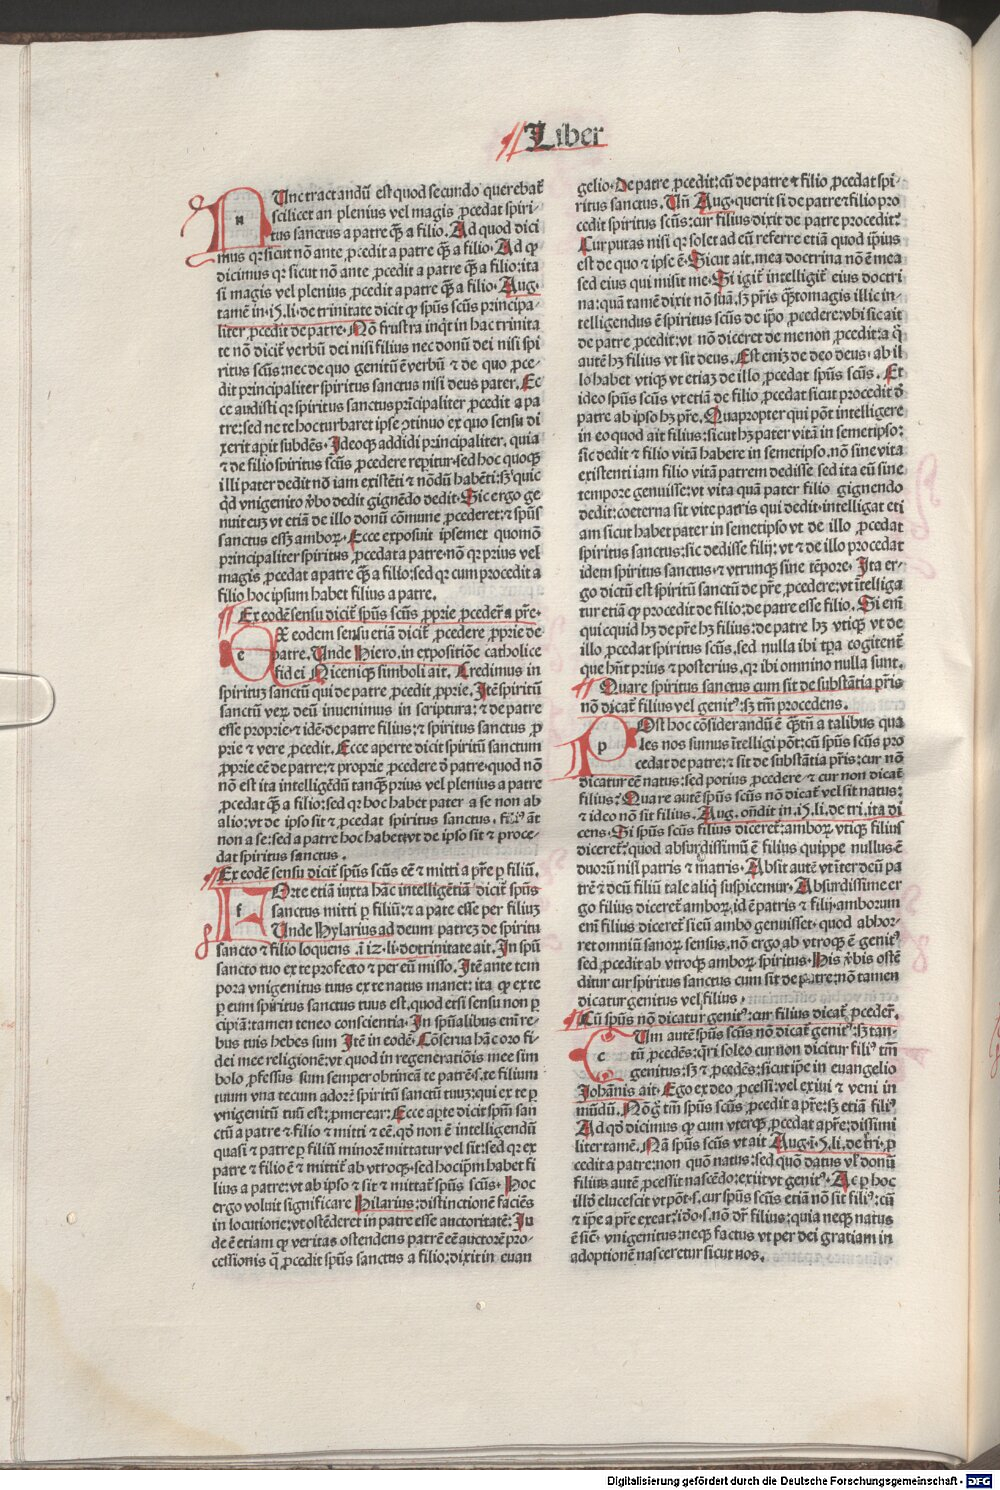 Liber
Vnc tractandū est quod secundo querebat̄
scilicet an plenius vel magis ꝓcedat spiri-
tus sanctus a patre q̄ꝫ a filio. Ad quod dici
mus qꝛ sicut nō ante ꝓcedit a patre q̄ꝫ a filio. Ad ꝙ
dicimus qꝛ sicut nō ante ꝓcedit a patre q̄ꝫ a filio: ita
si magis vel plenius ꝓcedit a patre q̄ꝫ a filio. Aug.
tamē in. i5. li. de trinitate dicit ꝙ spūs scūs principa-
liter ꝓcedit de patre. Nō frustra inq̄t in hac trinita
te nō dicit̄ verbū dei nisi filius nec donū dei nisi spi
ritus scūs: nec de quo genitū ē verbū ⁊ de quo ꝓce-
dit principaliter spiritus sanctus nisi deus pater. Ec
ce audisti qꝛ spiritus sanctus prīcipaliter ꝓcedit a pa
tre: sed ne te hoc turbaret ipse ꝯtinuo ex quo sensu di
xerit apit subdēs. Ideoqꝫ addidi principaliter. quia
⁊ de filio spiritus scūs ꝓcedere repitur. sed hoc quoqꝫ
illi pater dedit nō iam existēti ⁊ nōdū habēti: sꝫ quic
qd̄ vnigenito v̄bo dedit gignēdo dedit. Sic ergo ge
nuit euꝫ vt etiā de illo donū cōmune ꝓcederet: ⁊ spūs
sanctus essꝫ amboꝝ. Ecce exposuit ipsemet quomō
principaliter spiritus ꝓcedat a patre. nō qꝛ prius vel
magis ꝓcedat a patre q̄ꝫ a filio: sed qꝛ cum procedit a
filio hoc ipsum habet filius a patre.
Ex eodē sensu dicit̄ spūs scūs ꝓprie ꝓceder̄ a pr̄e.
X eodem sensu etiā dicit̄ ꝓcedere ꝓprie de
patre. Vnde Hiero. in expositiōe catholice
fidei Niceniqꝫ simboli ait. Credimus in
spirituꝫ sanctū qui de patre ꝓcedit ꝓprie. Itē spiritū
sanctū veꝝ deū inuenimus in scriptura: ⁊ de patre
esse proprie. ⁊ idē. de patre filius: ⁊ spiritus sanctus ꝓ
prie ⁊ vere ꝓcedit. Ecce aperte dicit spiritū sanctum
ꝓprie eē de patre: ⁊ proprie ꝓcedere d̄ patre. quod nō
nō est ita intelligēdū tanq̄ꝫ prius vel plenius a patre
ꝓcedat q̄ꝫ a filio: sed qꝛ hoc habet pater a se non ab
alio: vt de ipso sit ⁊ ꝓcedat spiritus sanctus. filiꝰ āt
non a se: sed a patre hoc habet: vt de ipso sit ⁊ proce-
dat spiritus sanctus.
Ex eodē sensu dicit̄ spūs scūs eē ⁊ mitti a pr̄e p filiū.
Orte etiā iuxta hāc intelligētiā dicit̄ spūs
sanctus mitti ꝑ filiū: ⁊ a pate esse per filiuꝫ
Vnde Hylarius ad deum patreꝫ de spiritu
sancto ⁊ filio loquens .i iz. li. de trinitate ait. In spū
sancto tuo ex te profecto ⁊ per eū misso. Itē ante tem
pora vnigenitus tuus ex te natus manet: ita ꝙ ex te
ꝑ eum spiritus sanctus tuus est. quod etsi sensu non ꝑ
cipiā: tamen teneo conscientia. In spūalibus eni re-
bus tuis hebes sum Itē in eodē. Cōserua hāc oro fi-
dei mee religionē: vt quod in regeneratiōis mee sim
bolo ꝓfessus sum semper obtineā te patrē. s. te filium
tuum vna tecum adorē spiritū sanctū tuuꝫ: qui ex te ꝑ
vnigenitū tuū est: ꝓmerear: Ecce apte dicit spm̄ san
ctū a patre ⁊ filio ⁊ mitti ⁊ eē. qd̄ non ē intelligendū
quasi ⁊ patre ꝑ filiū minorē mittatur vel sit: sed qꝛ ex
patre ⁊ filio ē ⁊ mittit̄ ab vtroqꝫ. sed hoc ip̄m habet fi
lius a patre: vt ab ipso ⁊ sit ⁊ mittat̄ spūs scūs. Hoc
ergo voluit significare Hilarius: distinctionē faciēs
in locutione: vt ostēderet in patre esse auctoritatē: In
de ē etiam ꝙ veritas ostendens patrē eē auctorē pro-
cessionis q̄ ꝓcedit spūs sanctus a filio: dixit in euan
gelio. De patre ꝓcedit: cū de patre ⁊ filio ꝓcedat spi-
ritus sanctus. Vn̄ Aug. querit si de patre ⁊ filio pro
cedit spiritus scūs: cur filius dixit de patre procedit:
Cur putas nisi qꝛ solet ad eū referre etiā quod ip̄ius
est de quo ⁊ ipse ē. Sicut ait. mea doctrina nō ē mea
sed eius qui misit me. Si igit̄ intelligit̄ eius doctri
na: quā tamē dixit nō suā. sꝫ pr̄is q̄ꝫtomagis illic in-
telligendus ē spiritus scūs de ip̄o ꝓcedere: vbi sic ait
de patre ꝓcedit: vt nō diceret de me non ꝓcedit: a q̄
autē hꝫ filius vt sit deus. Est enīꝫ de deo deus. ab il
lo habet vtiqꝫ vt etiaꝫ de illo ꝓcedat spūs scūs. Et
ideo spūs scūs vt etiā de filio ꝓcedat sicut procedit d̄
patre ab ipso hꝫ pr̄e. Quapropter qui pōt intelligere
in eo quod ait filius: sicut hꝫ pater vitā in semetipso:
sic dedit ⁊ filio vitā habere in semetipso. nō sine vita
existenti iam filio vitā patrem dedisse sed ita eū sine
tempore genuisse: vt vita quā pater filio gignendo
dedit: coeterna sit vite patris qui dedit. intelligat eti
am sicut habet pater in semetipso vt de illo ꝓcedat
spiritus sanctus: sic dedisse filij: vt ⁊ de illo procedat
idem spiritus sanctus. ⁊ vtrunqꝫ sine tēpore. Ita er-
go dictū est spiritū sanctū de pr̄e ꝓcedere: vt itelliga
tur etiā ꝙ procedit de filio: de patre esse filio. Si eni
quicquid hꝫ de pr̄e hꝫ filius: de patre hꝫ vtiqꝫ vt de
illo ꝓcedat spiritus scūs. sed nulla ibi tp̄a cogitent̄
que hn̄t prius ⁊ posterius. qꝛ ibi omnino nulla sunt.
Quare spiritus sanctus cum sit de substātia pr̄is
nō dicat̄ filius vel genitꝰ: sꝫ tm̄ procedens.
Ost hoc cōsiderandū ē q̄ꝫtū a talibus qua
les nos sumus itelligi pōt: cū spūs scūs pro
cedat de patre: ⁊ sit de substātia pr̄is: cur nō
dicatur eē natus: sed potius ꝓcedere ⁊ cur non dicat̄
filius: Quare autē spūs scūs nō dicat̄ vel sit natus:
⁊ ideo nō sit filius. Aug. on̄dit in. i5. li. de tri. ita di
cens. Si spūs scūs filius diceret̄: amboꝝ vtiqꝫ filius
diceret̄: quod absurdissimū ē filius quippe nullus ē
duorū nisi patris ⁊ matris. Absit autē vt iter deū pa
trē ⁊ deū filiū tale aliqd̄ suspicemur. Absurdissime er
go filius diceret̄ amboꝝ. id ē patris ⁊ filij. amborum
eni filius diceret̄ si eū ambo genuisset. quod abhor-
ret omniū sanoꝝ sensus. nō ergo ab vtroqꝫ ē genitꝰ
sed ꝓcedit ab vtroqꝫ amboꝝ spiritus. His v̄bis ostē
ditur cur spiritus sanctus cum sit de patre: nō tamen
dicatur genitus vel filius.
Cū spūs nō dicatur genitꝰ: cur filius dicat̄ ꝓceder̄.
Vm autē spūs scūs nō dicat̄ genitꝰ: sꝫ tan-
tū ꝓcedēs: q̄ri solet cur non dicitur filiꝰ tm̄
genitus: sꝫ ⁊ ꝓcedēs: sicut ip̄e in euangelio
Johānis ait. Ego ex deo ꝓcessi: vel exiui ⁊ veni in
mūdū. Nōg̊ tm̄ spūs scūs ꝓcedit a pr̄e: sꝫ etiā filiꝰ
Ad qd̄ dicimus ꝙ cum vterqꝫ ꝓcedat apr̄e: dissimi
liter tamē. Nā spūs scūs vt ait Aug. i. i5. li. de tri. ꝓ
cedit a patre: non quō natus: sed quō datus vl̄ donū
filius autē ꝓcessit nascēdo: exiit vt genitꝰ. Ac ꝑ hoc
illd̄ elucescit vt pōt. s. cur spūs scūs etiā nō sit filiꝰ: cū
⁊ ip̄e a pr̄e exeat. idō. s. nō dr̄ filius: quia neqꝫ natus
ē sicꝰ. vnigenitus: neqꝫ factus vt per dei gratiam in
adoptionē nasceretur sicut nos.
Digitalisierung gefördert durch die Deutsche Forschungsgemeinschaft - DFG